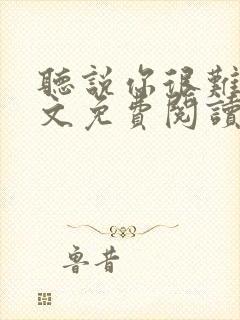 聽說你很難
文免費閱讀
魯昔